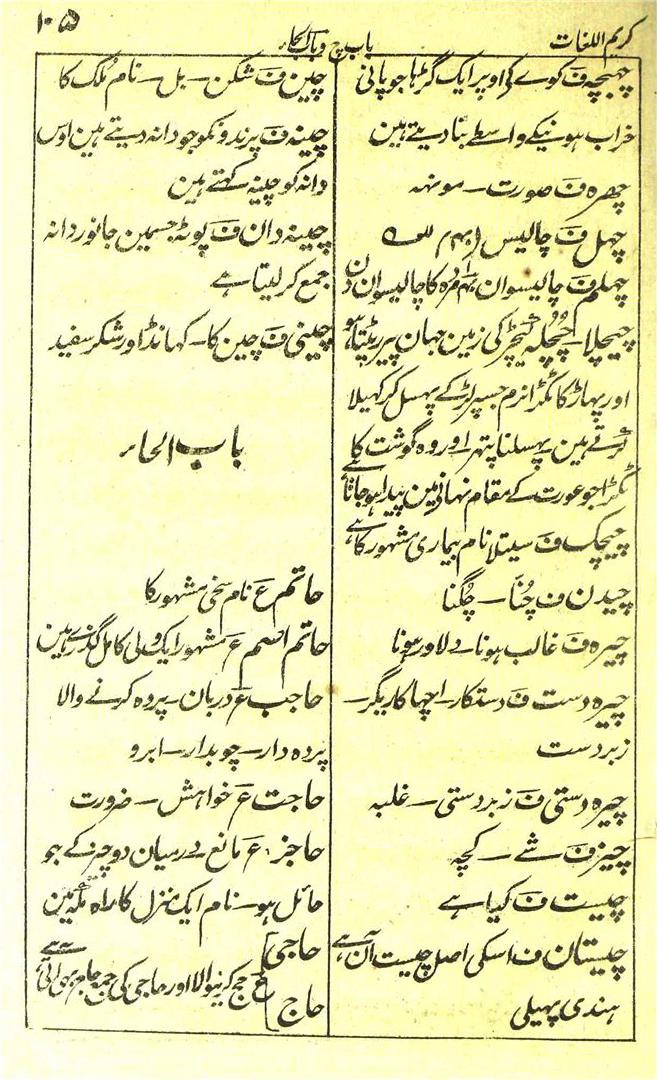 کریم اللغات
باب چ و باب الحاء
۱۰۵
چہبچہ ف کوے کے اوپر ایک گڑہا جو پانی
خراب ہونیکے واسطے بنا دیتے ہین
چہرہ ف صورت ۔ مونہہ
چہل ف چالیس
چہلم ف چالیسوان مردہ کا چالیسوان دن
چیچلا ۔ کیچڑ کی زمین جہان پیر
اور پہاڑ کا ٹکڑا نرم جسپر لڑکے پہسل کر کہیلا
کرتے ہین ۔ پہسلنا پتہر اور وہ گوشت کا
ٹکڑا جو عورت کے مقام نہانی مین پیدا ہو جاتا ہے
چیچک ف سیتلا نام بیماری مشہور کا ہے
چیدن ف چُننا ۔ چُگنا
چیرہ ف غالب ہونا دلاور ہونا
چیرہ دست ف دستکار ۔ اچہا کاریگر ۔
زبردست
چیرہ دستی ف زبردستی ۔ غلبہ
چیز ف شے ۔ کچہ
چیست ف کیا ہے
چیستان ف اسکی اصل چیست آن ہے
ہندی پہیلی
چین ف شکن ۔ بل ۔ نام مُلک کا
چینہ ف پرندونکو جو دانہ دیتے ہین اوس
دانہ کو چینہ کہتے ہین
چینہ دان ف پوٹہ جسمین جانور دانہ
جمع کر لیتا ہے
چینی ف چین کا ۔ کہانڈ اور شکر سفید
باب الحاء
حاتم ع نام سخی مشہور کا
حاتم اصم ع مشہور ایک ولی کامل گذرے ہین
حاجب ع دربان ۔ پردہ کرنے والا
پردہ دار ۔ چوبدار ۔ ابرو
حاجت ع خواہش ۔ ضرورت
حاجز ع مانع درمیان دو چیز کے جو
حائل ہو ۔ نام ایک منزل کا راہ مکہ مین
حاجی
حاج
ع حج کرنیوالا اور حاجی کی جمع حاج بھی آتی ہے